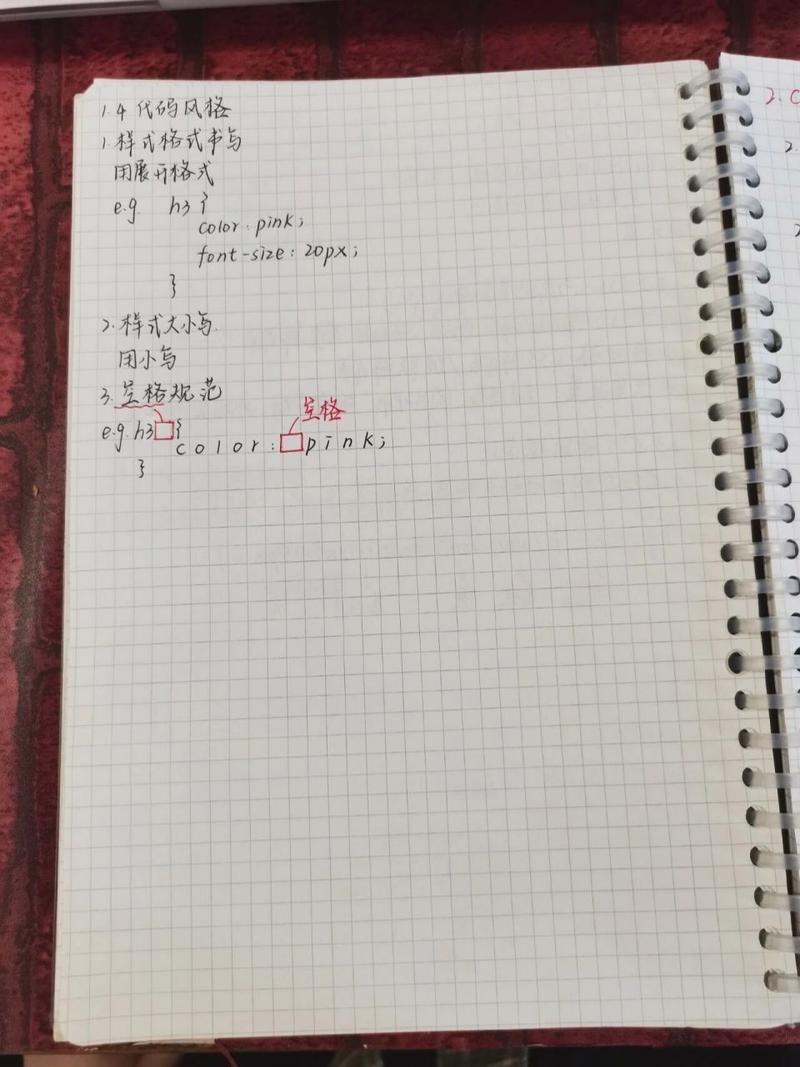 1.4 代码风格
1.样式格式书写
用展开格式
e.g. h3 {
color: pink;
font-size: 20px;
}
2.样式大小写.
用小写
3.空格规范
空格
e.g. h3 {
color: pink;
}
2.C
2.
2